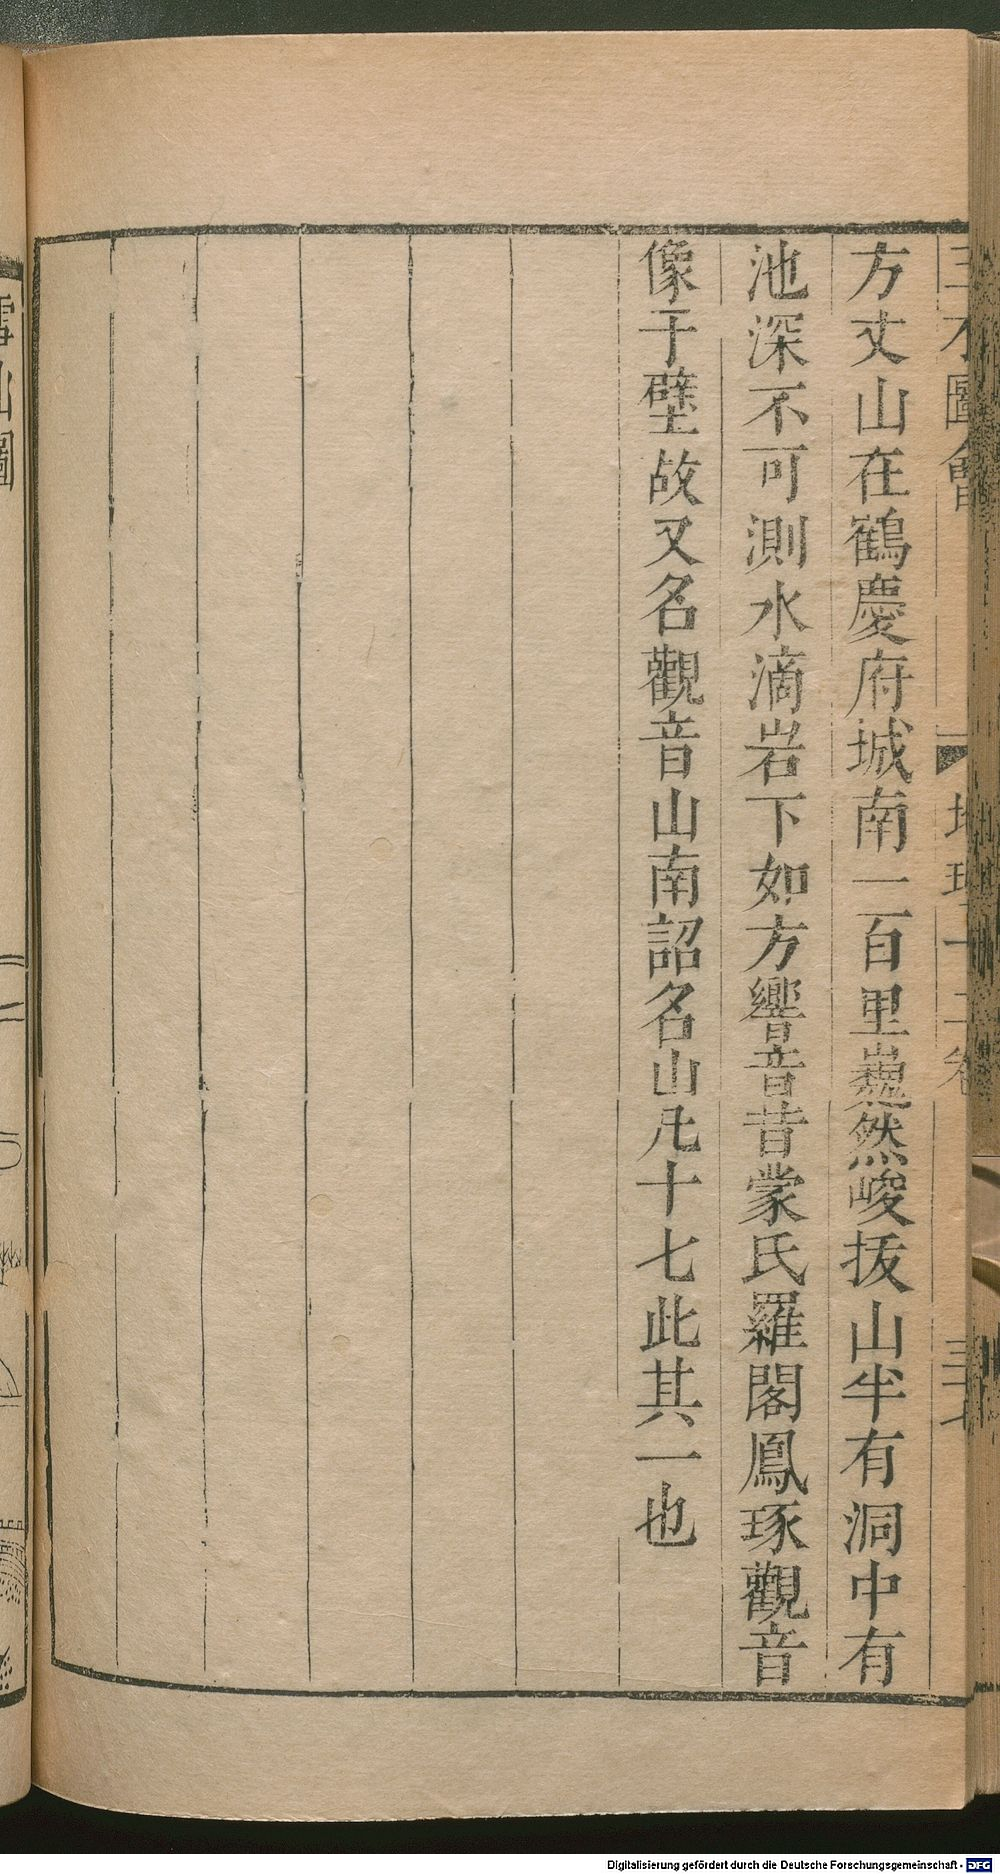 方丈山在鶴慶府城南一百里巍然峻拔山半有洞中有
池深不可測水滴岩下如方響音昔蒙氏羅閣鳳琢觀音
像于壁故又名觀音山南詔名山凡十七此其一也
雪山圖
Digitalisierung gefördert durch die Deutsche Forschungsgemeinschaft - DFG